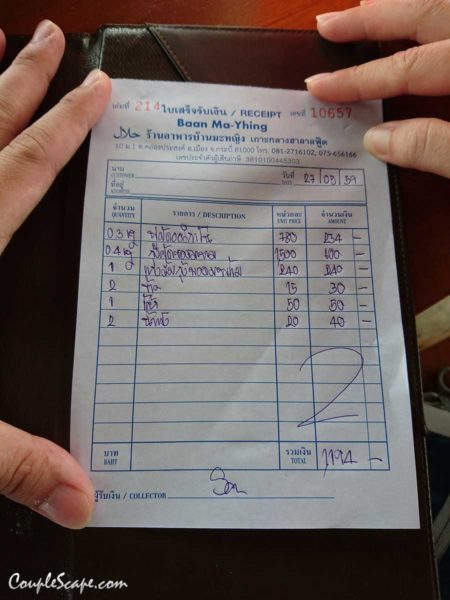 เล่มที่ 214 ใบเสร็จรับเงิน / RECEIPT เลขที่ 10657
Baan Ma-Yhing
حلال ร้านอาหารบ้านมะหญิง เกาะกลางฮาลาลฟู๊ด
10 ม.1 ต.คลองประสงค์ อ.เมือง จ.กระบี่ 81000 โทร. 081-2716102, 075-656166
เลขประจำตัวผู้เสียภาษี 3810100445303
นาม
CUSTOMER
วันที่ 27/08/59
DATE
ที่อยู่
ADDRESS
จำนวน รายการ / DESCRIPTION หน่วยละ จำนวนเงิน
QUANTITY UNIT PRICE AMOUNT
0.3 780 234 –
0.4 1500 600 –
1 240 240 –
2 ข้าว 15 30 –
1 50 50 –
2 20 40 –
2
บาท รวมเงิน 1194 –
BAHT TOTAL
ผู้รับเงิน / COLLECTOR
CoupleScape.com